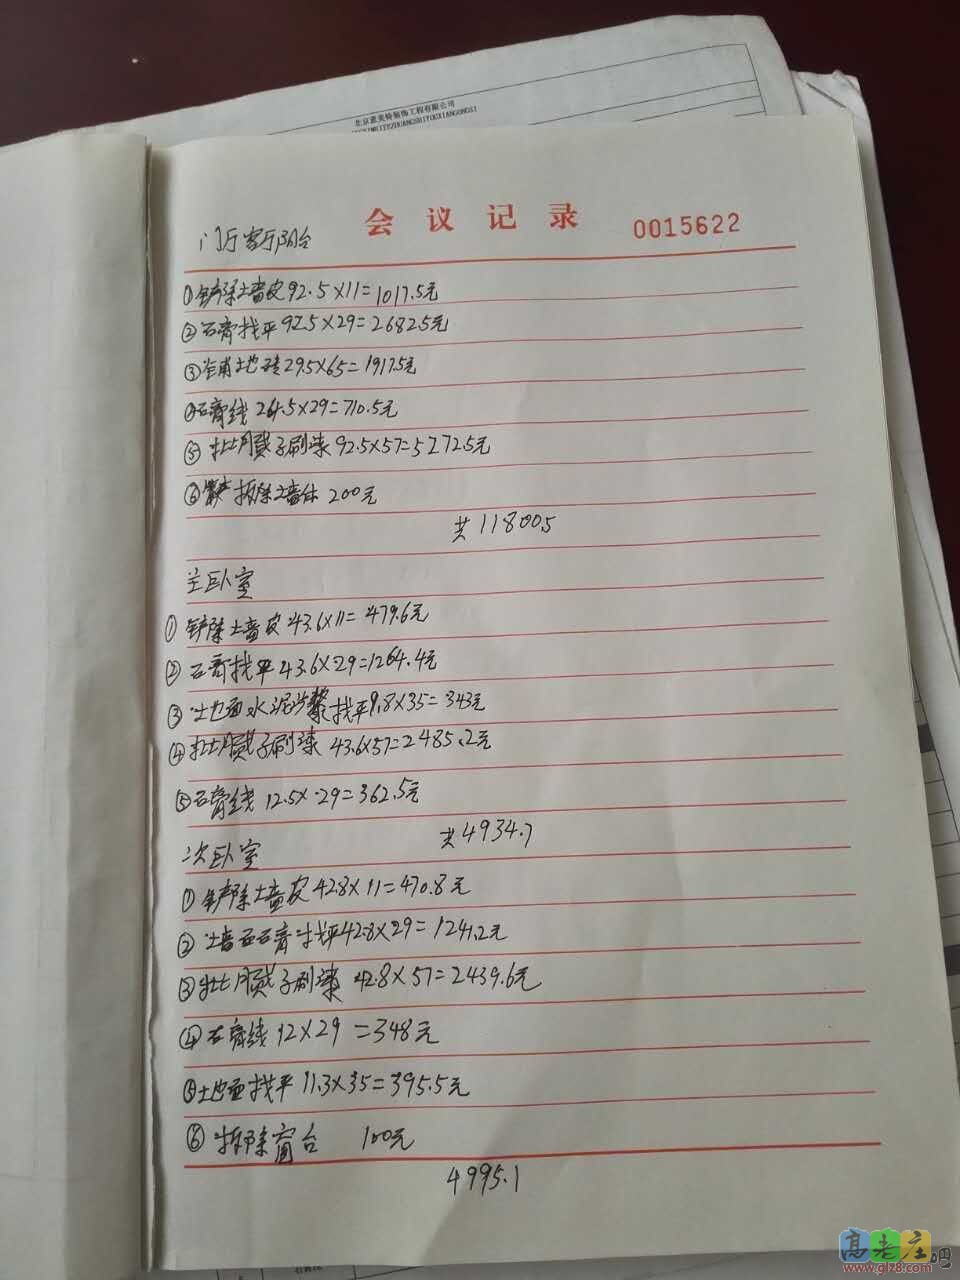 北京意美特装饰工程有限公司
会议记录
0015622
门厅客厅阳台
①铲除墙皮92.5×11=1017.5元
②石膏找平92.5×29=2682.5元
③准铺地砖29.5×65=1917.5元
④石膏线24.5×29=710.5元
⑤壮月腻子刷漆92.5×57=5272.5元
⑥拆除墙体200元
共11800.5
主卧室
①铲除墙皮43.6×11=479.6元
②石膏找平43.6×29=1264.4元
③地面水泥沙浆找平9.8×35=343元
④壮月腻子刷漆43.6×57=2485.2元
⑤石膏线12.5×29=362.5元
共4934.7
次卧室
①铲除墙皮42.8×11=470.8元
②墙面石膏找平42.8×29=1241.2元
③壮月腻子刷漆42.8×57=2439.6元
④石膏线12×29=348元
⑤地面找平11.3×35=395.5元
⑥拆除窗台100元
4995.1
高老庄吧
www.glz8.com